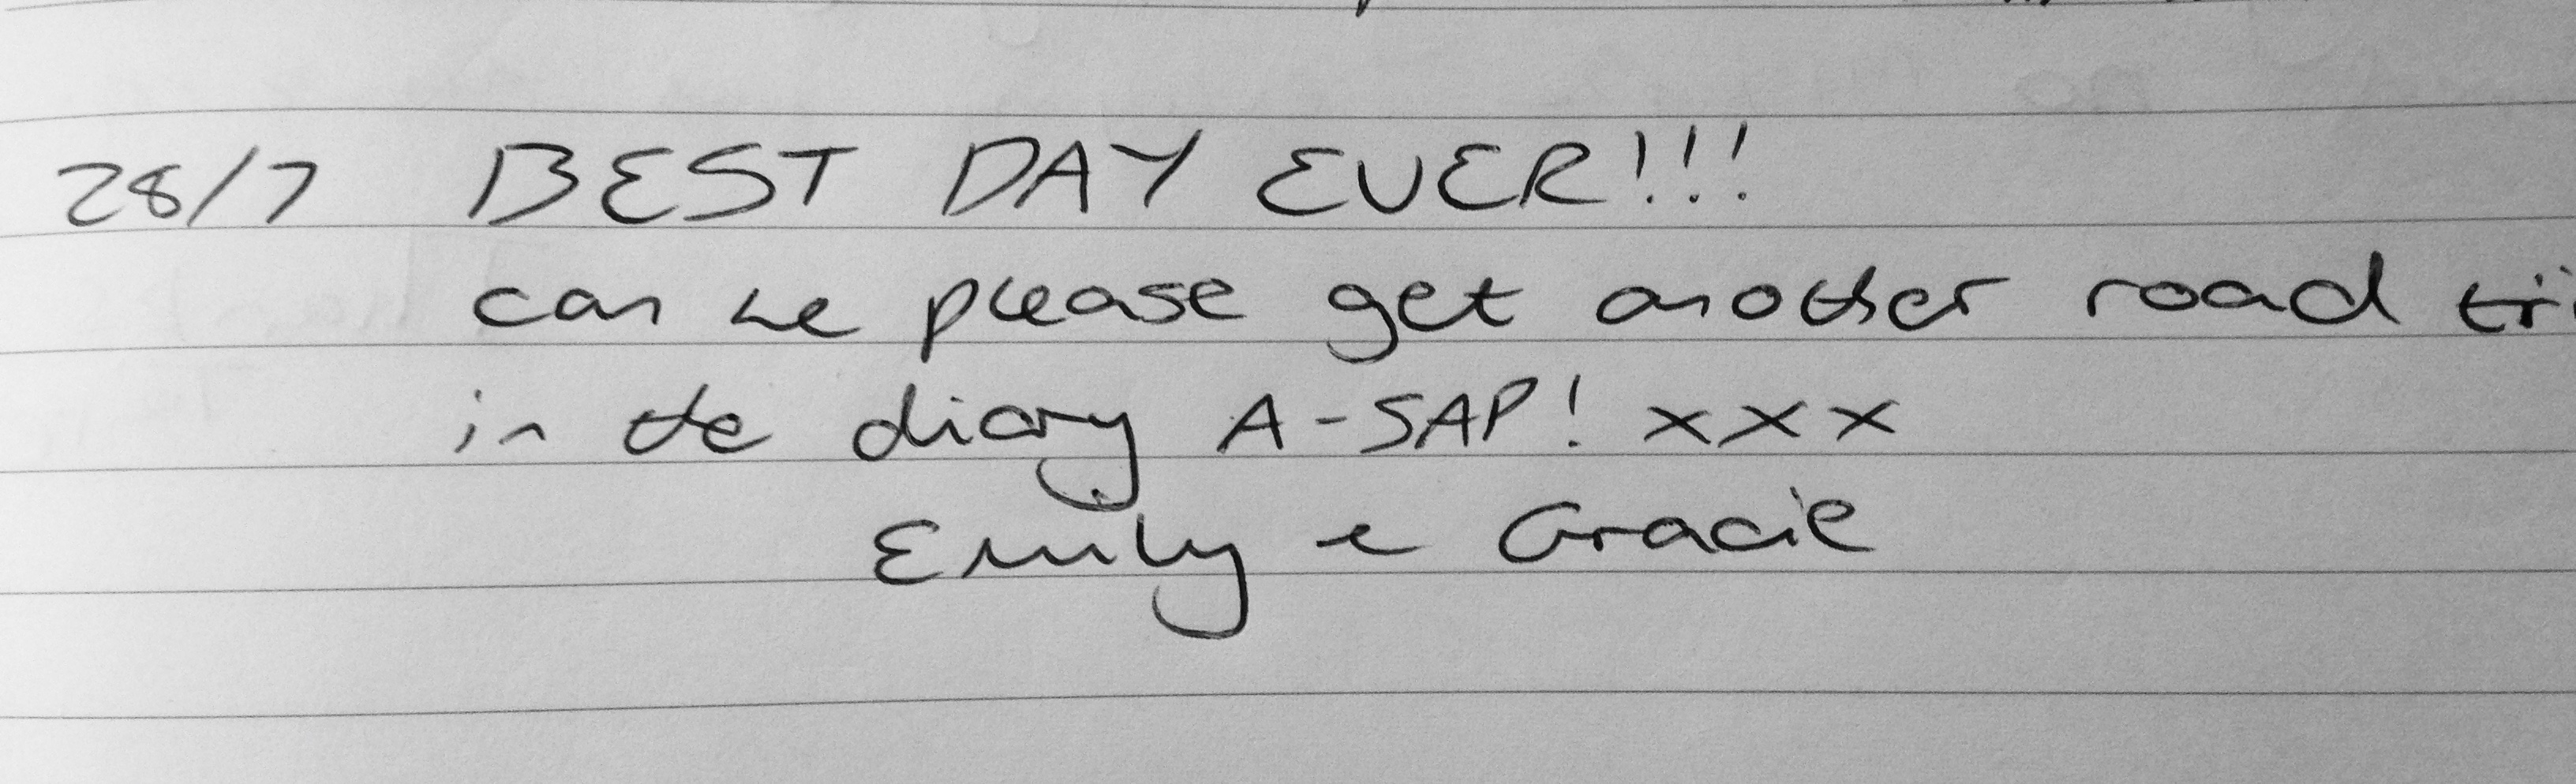 28/7 BEST DAY EVER!!!
can we please get another road tri
in the diary A-SAP! xxx
Emily & Gracie